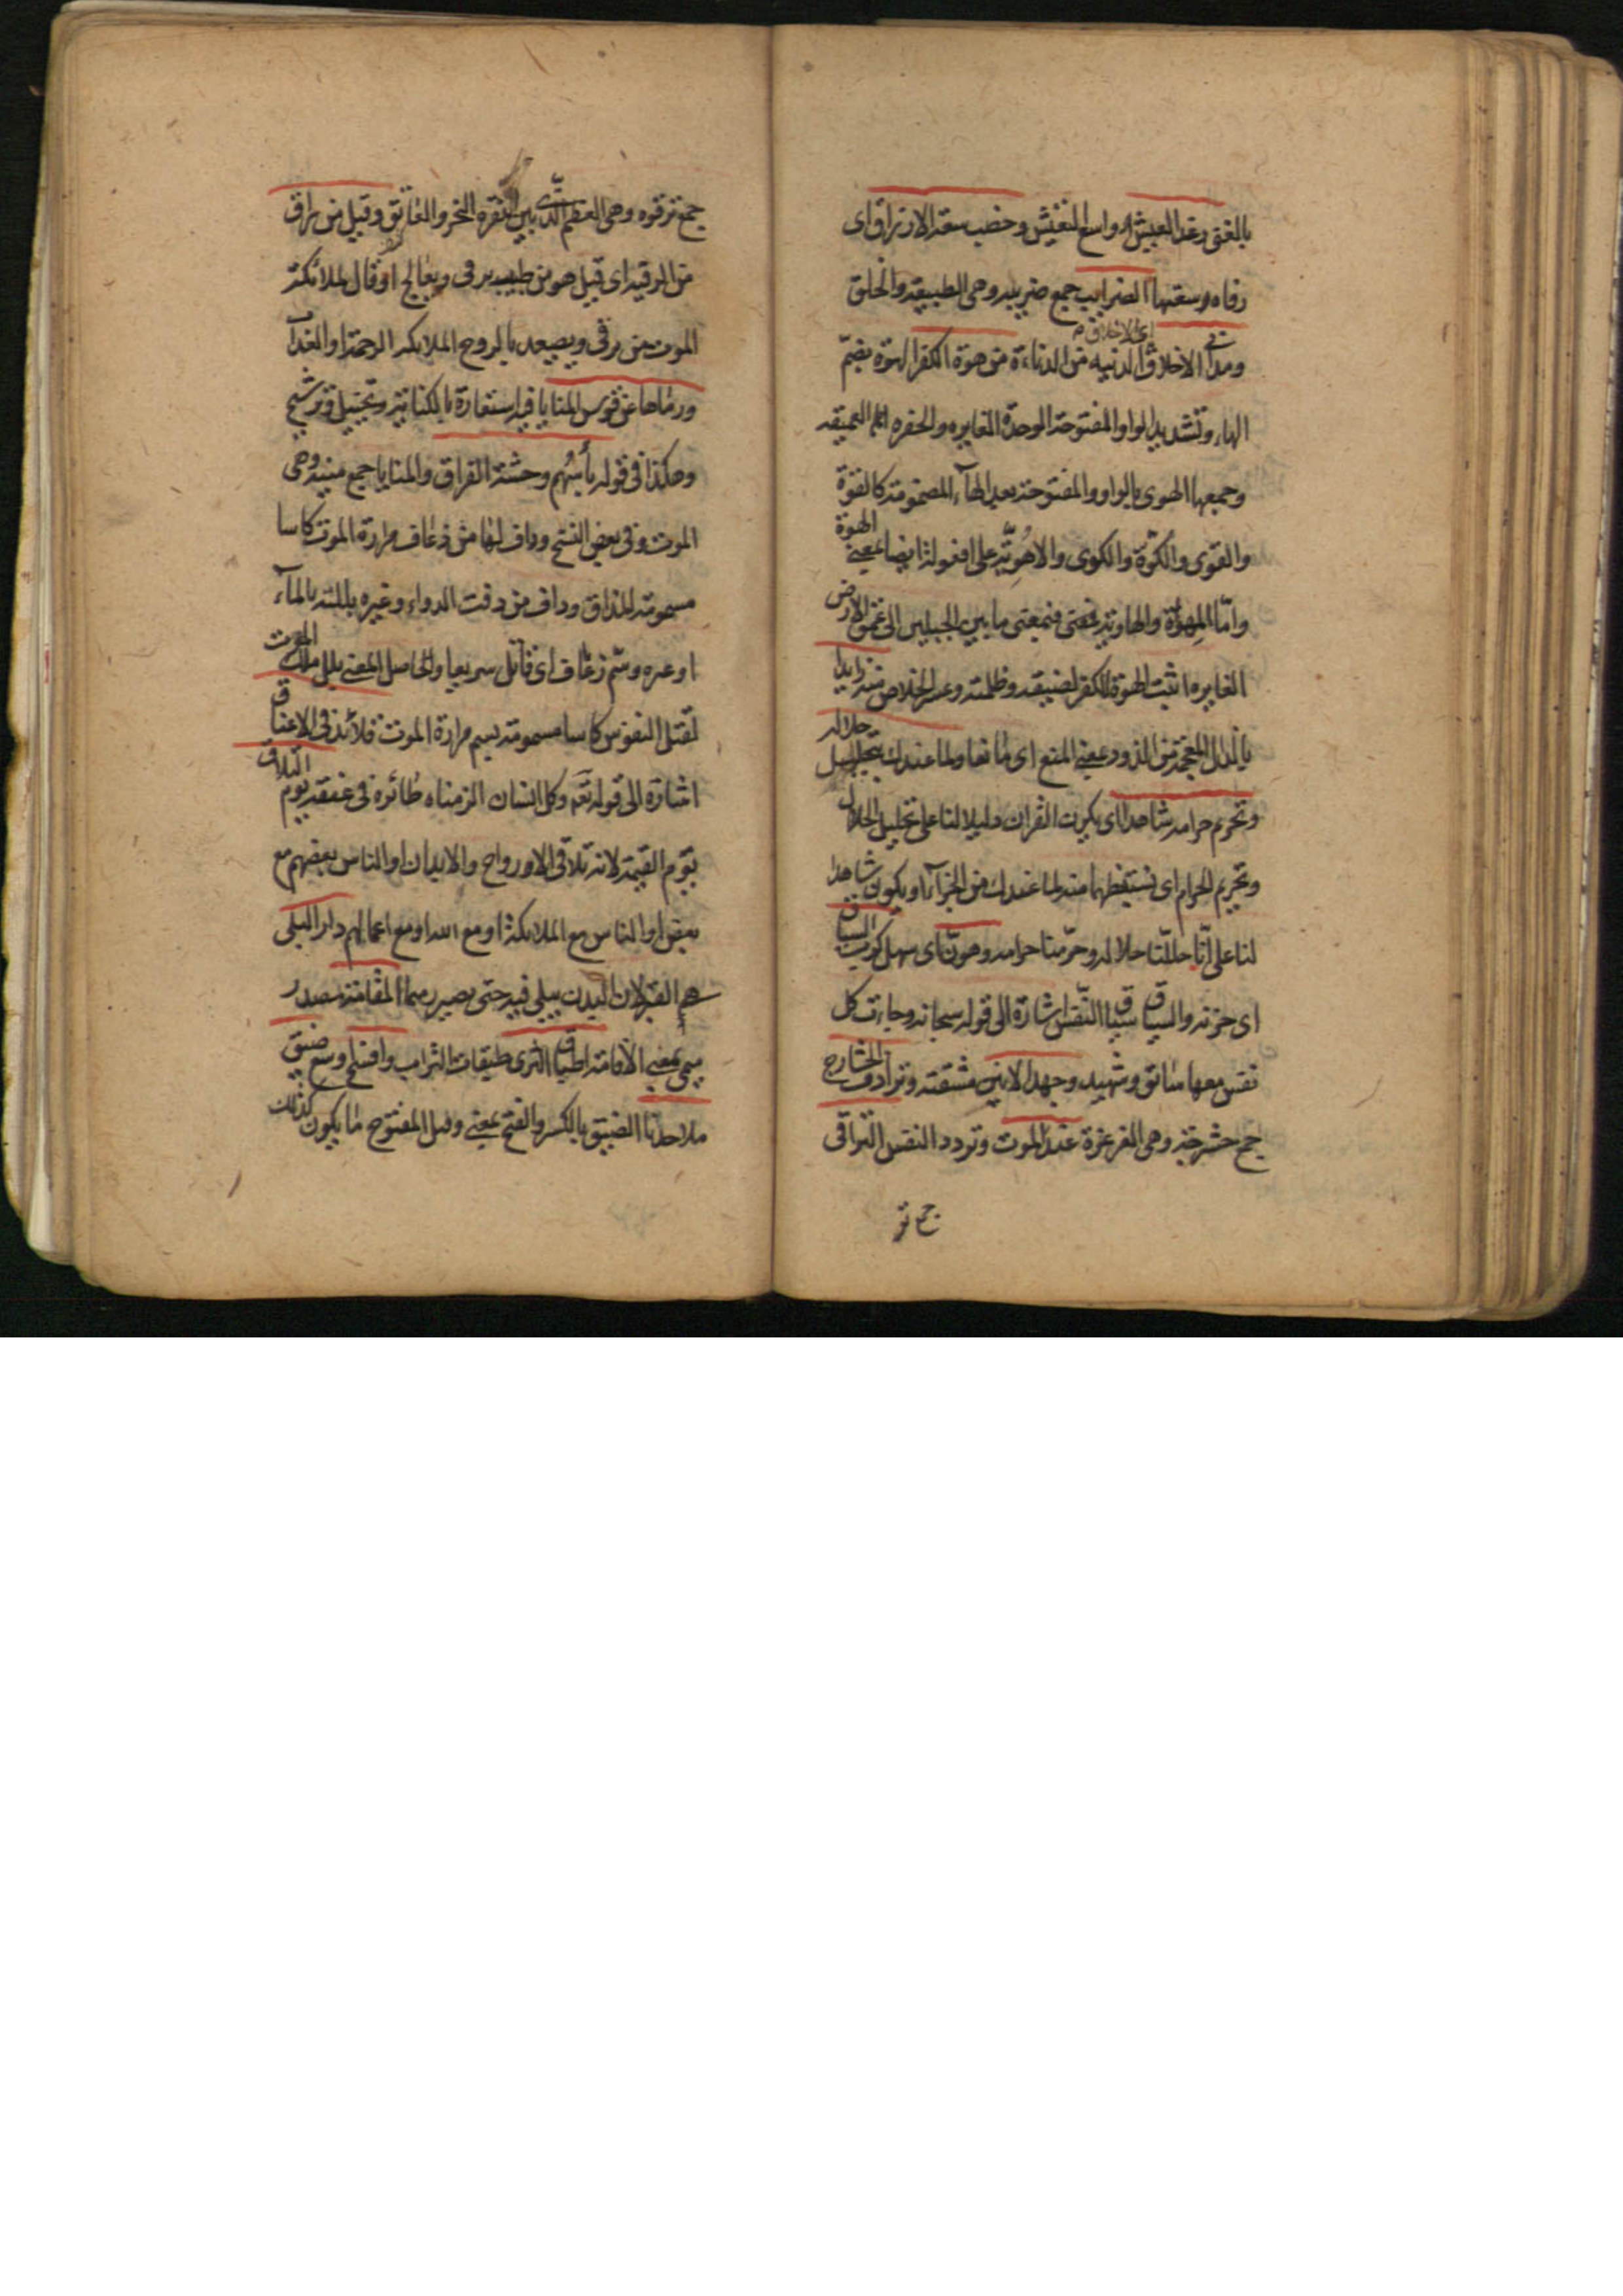 بالغنى رغد العيش اى واسع التعيش وخصب سعة الارزاق اى
رفاه وسعتها الضرايب جمع ضريبه وهى الطبيعه والخلق
اى الاخلاق
ومدانى الاخلاق الدنيه من الدناءة من هوة الكفر الهوّة بضمّ
الهاء وتشديد الواو المفتوحة الوهدة الغايره والحفره العميقه
وجمعها الهوى بالواو المفتوحة بعد الهآء المضمومة كالقوّة
والقوى والكوّة والكوى والاهُويّة على افعولة ايضا بمعنى الهوة
وامّا المهواة والهاوية فمعنى ما بين الجبلين الى عمق الارض
الغايره اثبت الهوة للكفر لضيقه وظلمته وعسر الخلاص منه ذايدا
بالذال المعجمة من الذود بمعنى المنع اى مانعا ولما عندك بتحليل حلاله
وتحريم حرامه شاهدا اى يكون القران دليلا لنا على تحليل الحلال
وتحريم الحرام اى نستيقظهما منه لما عندك من الجزآء او يكون شاهدا
لنا على انّا حللّنا حلاله وحرّمنا حرامه وهوّن اى سهل كرب السياق
اى حزنه والسياق سياق النّفس اشارة الى قوله سبحانه وجاءت كل
نفس معها سائق وشهيد وجهد الانين مشقته وترادف الحشارج
جمع حشرجة وهى الغرغرة عند الموت وتردد النفس التراقى
جمع تر
جمع ترقوه وهى العظم الّذى بين الثغره النحر والعاتق وقيل من راق
من الرقيه اى قيل هو من طبيب يرقى ويعالج او قال ملائكة
الموت من يرقى ويصعد بالروح الملائكه الرحمة او العذاب
ورماها عن قوس المنايا فيه استعارة بالكناية وتخييل وترشيح
وهكذا فى قوله باسهُم وحشة الفراق والمنايا جمع منيه وهى
الموت وفى بعض النسخ وداف لها من ذعاف مرارة الموت كاسا
مسمومة المذاق وداف من دفت الدواء وغيره بللته بالمآء
او غيره وسّم زعاف اى قاتل سريعا والحاصل المعنى بلل ملك الموت
لقتل النفوس كاسا مسمومة بسم مرارة الموت قلائد فى الاعناق
اشارة الى قوله تعم وكل انسان الزمناه طائره فى عنقه يوم التلاق
يوم القيمة لانه تلاقى الارواح والابدان او الناس بعضهم مع
بعض او الناس مع الملائكة او مع الله او مع اعمالهم دار البلى
هى القبر لان البدن يبلى فيه حتى يصير رميما المقامة مصدر
ميمى بمعنى الاقامة اطباق الثرى طبقات التراب وافسح اوسع ضيق
ملاحدنا الضيق بالكسر والفتح بمعنى وقيل المفتوح ما يكون كذلك